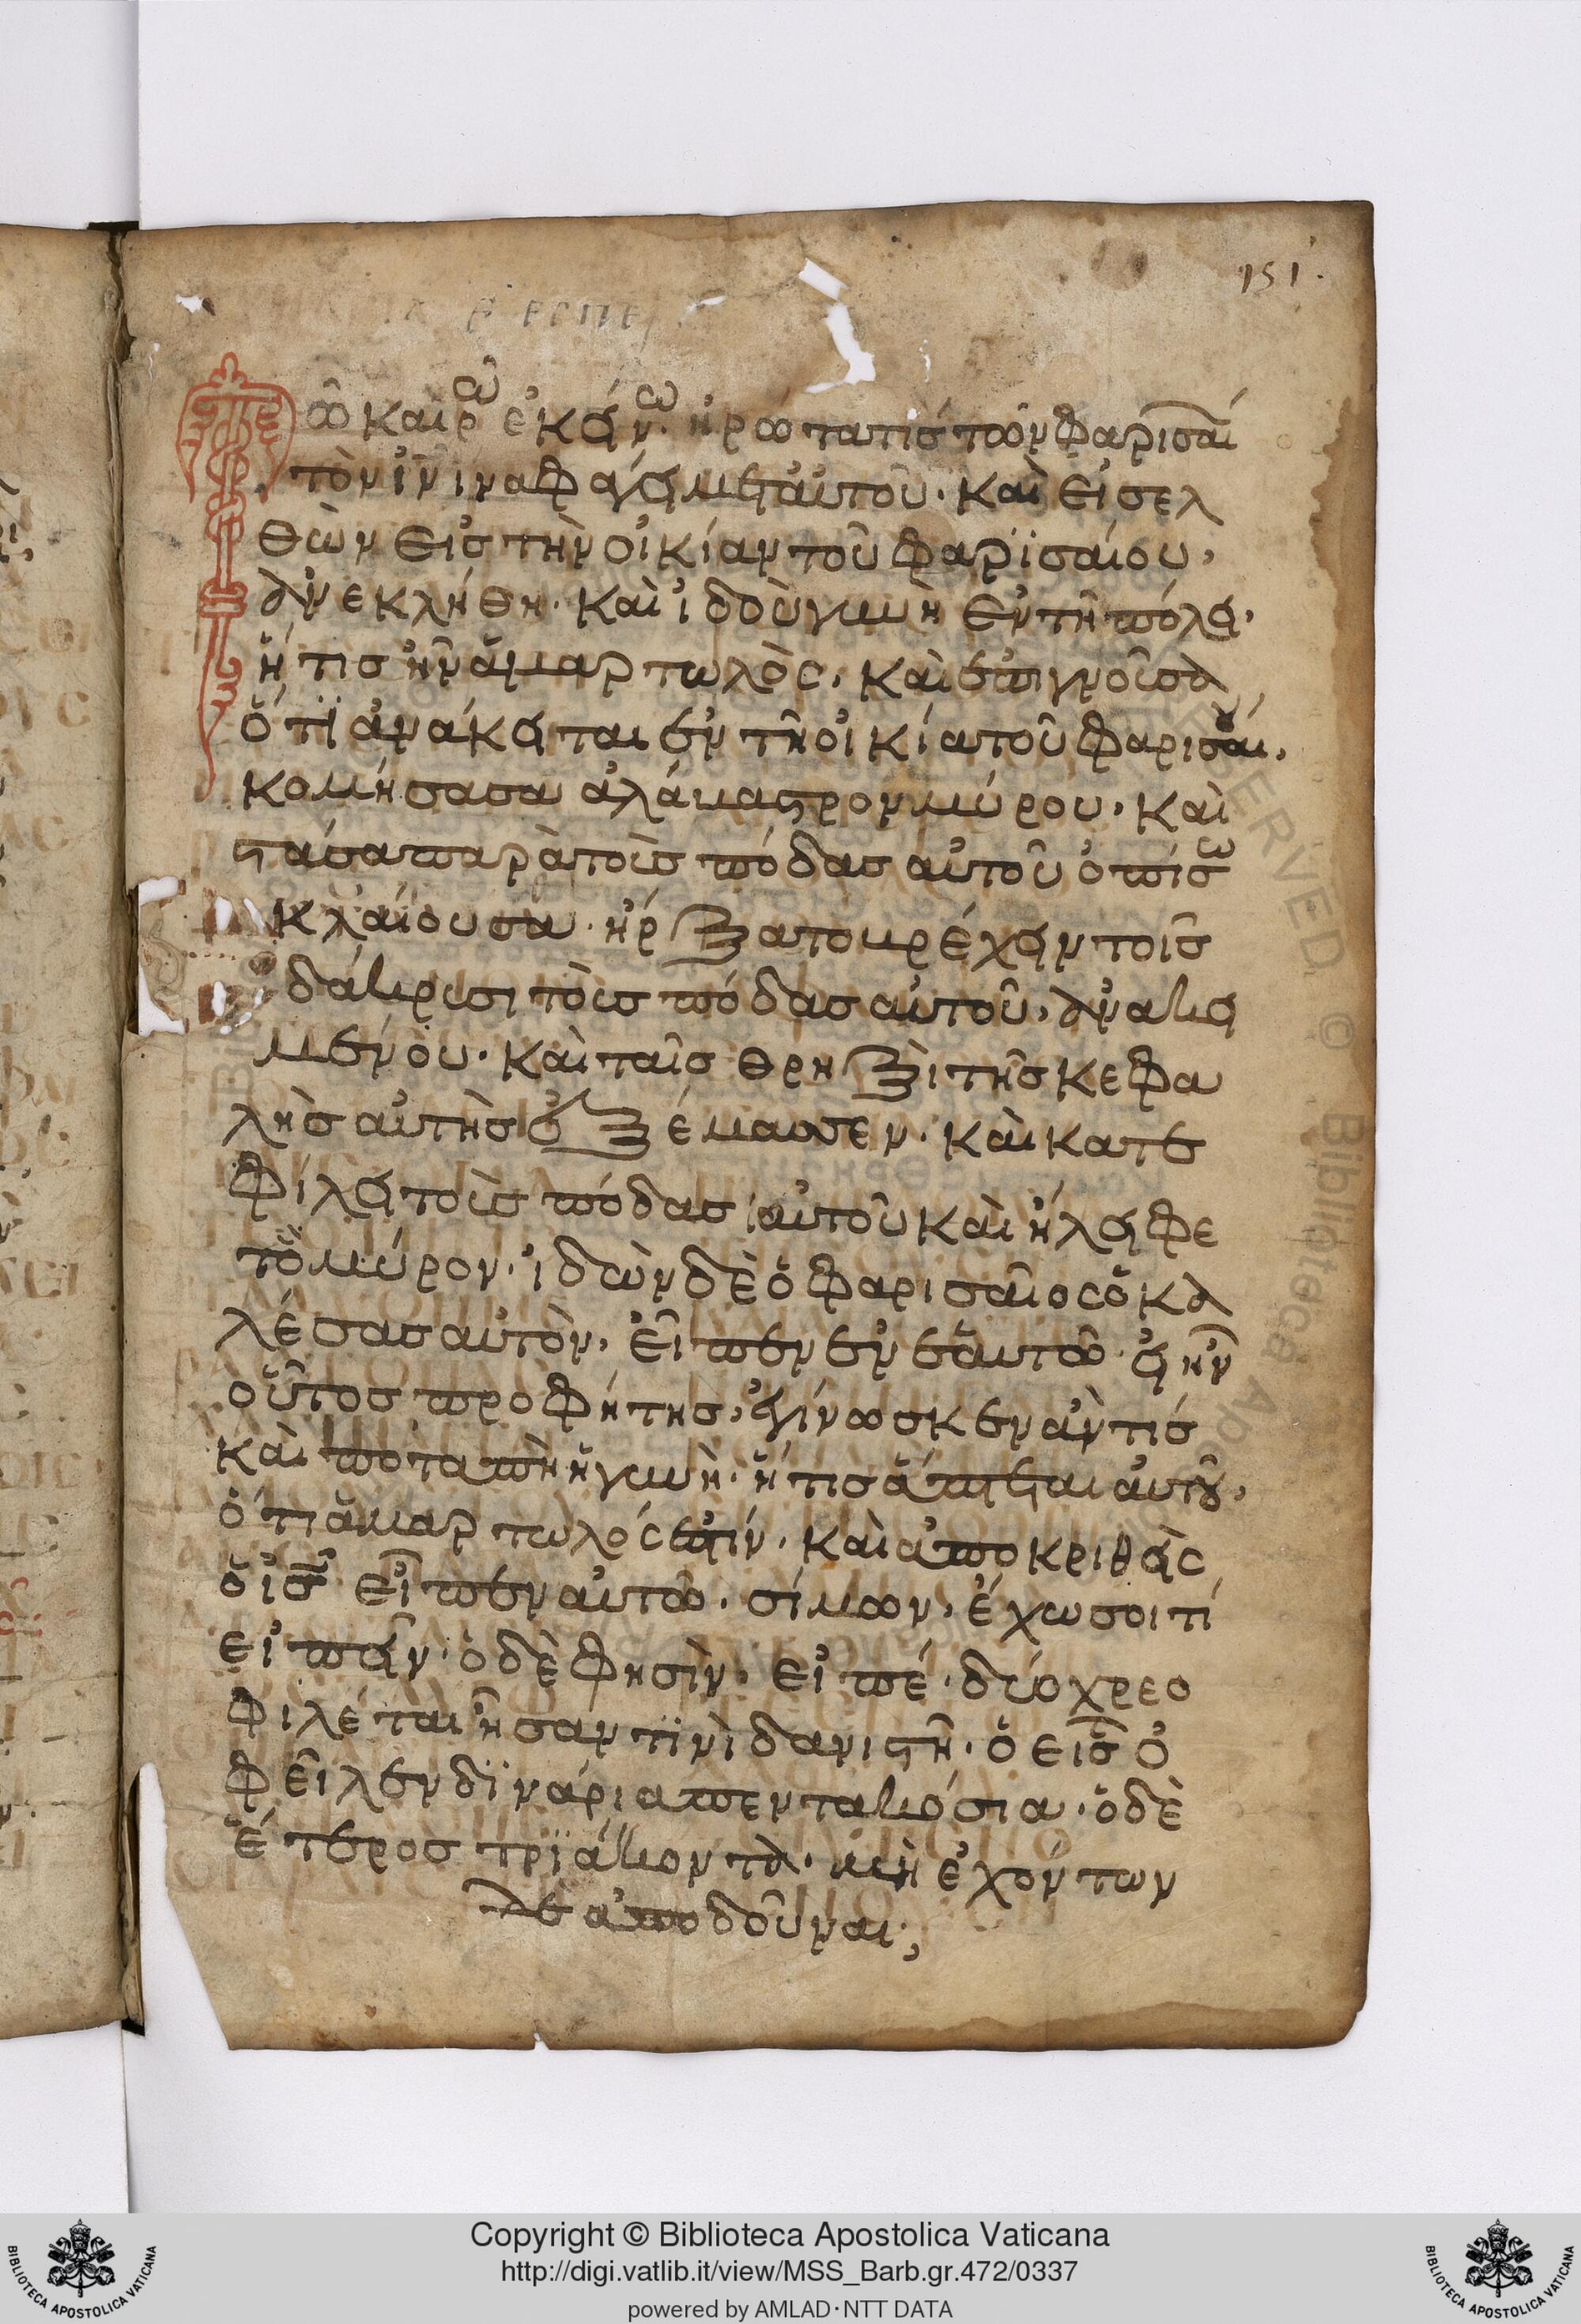 151
Τῶ καιρῶ ἐκείνω. ἠρώτα τισ τῶν φαρισαί
τὸν ἰν ἵνα φάγει μετ' αὐτοῦ. καὶ εἰσελ
θὼν εἰσ τὴν οἰκίαν τοῦ φαρϊσαίου,
ἀνεκλήθη. καὶ ἰδοὺ γυνὴ ἐν τῆ πόλει,
ἥτισ ἦν ἁμαρτωλὸς, καὶ ἐπιγνοῦσα
ὅτϊ ἀνάκειται ἐν τῆ οἰκία τοῦ φαρισαίου,
κομήσασα ἀλάβαστρον μύρου, καὶ
στάσα παρὰ τοὺσ πόδασ αὐτοῦ ὀπίσω
κλαίουσα. ἤρξατο βρέχειν τοῖσ
δάκρυσι τοὺσ πόδασ αὐτοῦ, ἀνακει
μένου. καὶ ταῖσ θρηξὶ τῆσ κεφα
λῆσ αὐτῆσ ἐξέμασσεν. καὶ κατε
φίλει τοὺσ πόδασ αὐτοῦ καὶ ἤλειφε
τὸ μύρον. ἰδὼν δὲ ὁ φαρισαῖος ὁ κα
λέσασ αὐτὸν, εἶπεν ἐν ἑαυτῶ. εἰ ἦν
οὗτοσ προφήτησ, ἐγίνωσκεν ἂν τίσ
καὶ ποταπὴ ἡ γυνὴ. ἥτισ ἅπτεται αὐτοῦ,
ὅτι ἁμαρτωλός ἐστίν. καὶ ἀποκριθεὶς
ὁ ἰσ εἶπεν αὐτῶ. σίμων, ἔχω σοι τί
εἰπεῖν. ὁ δὲ φησὶν, εἰπέ. δύο χρεο
φιλέται ἦσαν τϊνὶ δανιστῆ. ὁ εἶσ ὀ
φεῖλεν δϊνάρια πεντακόσια. ὁ δὲ
ἕτεροσ τρϊάκοντα. μὴ ἐχόντων
δὲ ἀποδοῦναι,
Copyright © Biblioteca Apostolica Vaticana
http://digi.vatlib.it/view/MSS_Barb.gr.472/0337
powered by AMLAD·NTT DATA
BIBLIOTECA APOSTOLICA VATICANA
BIBLIOTECA APOSTOLICA VATICANA